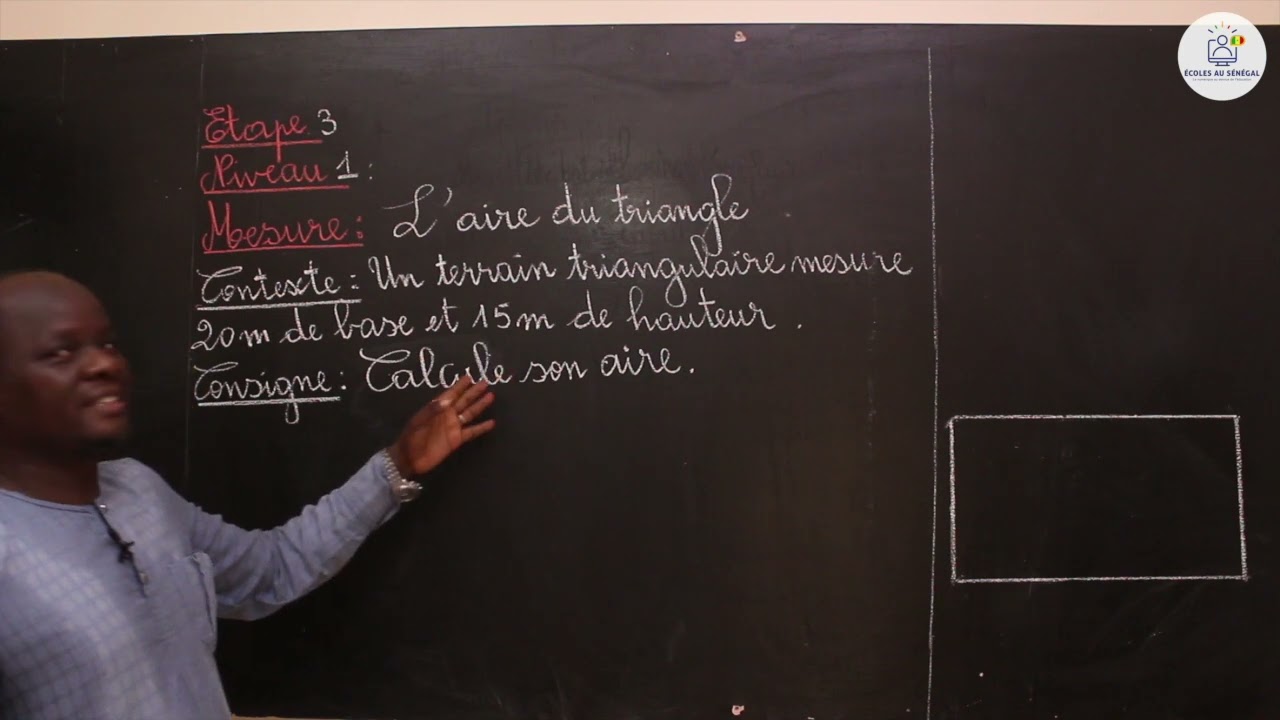 Etape 3
Niveau 1 :
Mesure : L'aire du triangle
Contexte : Un terrain triangulaire mesure
20m de base et 15m de hauteur .
Consigne : Calcule son aire.
ÉCOLES AU SÉNÉGAL